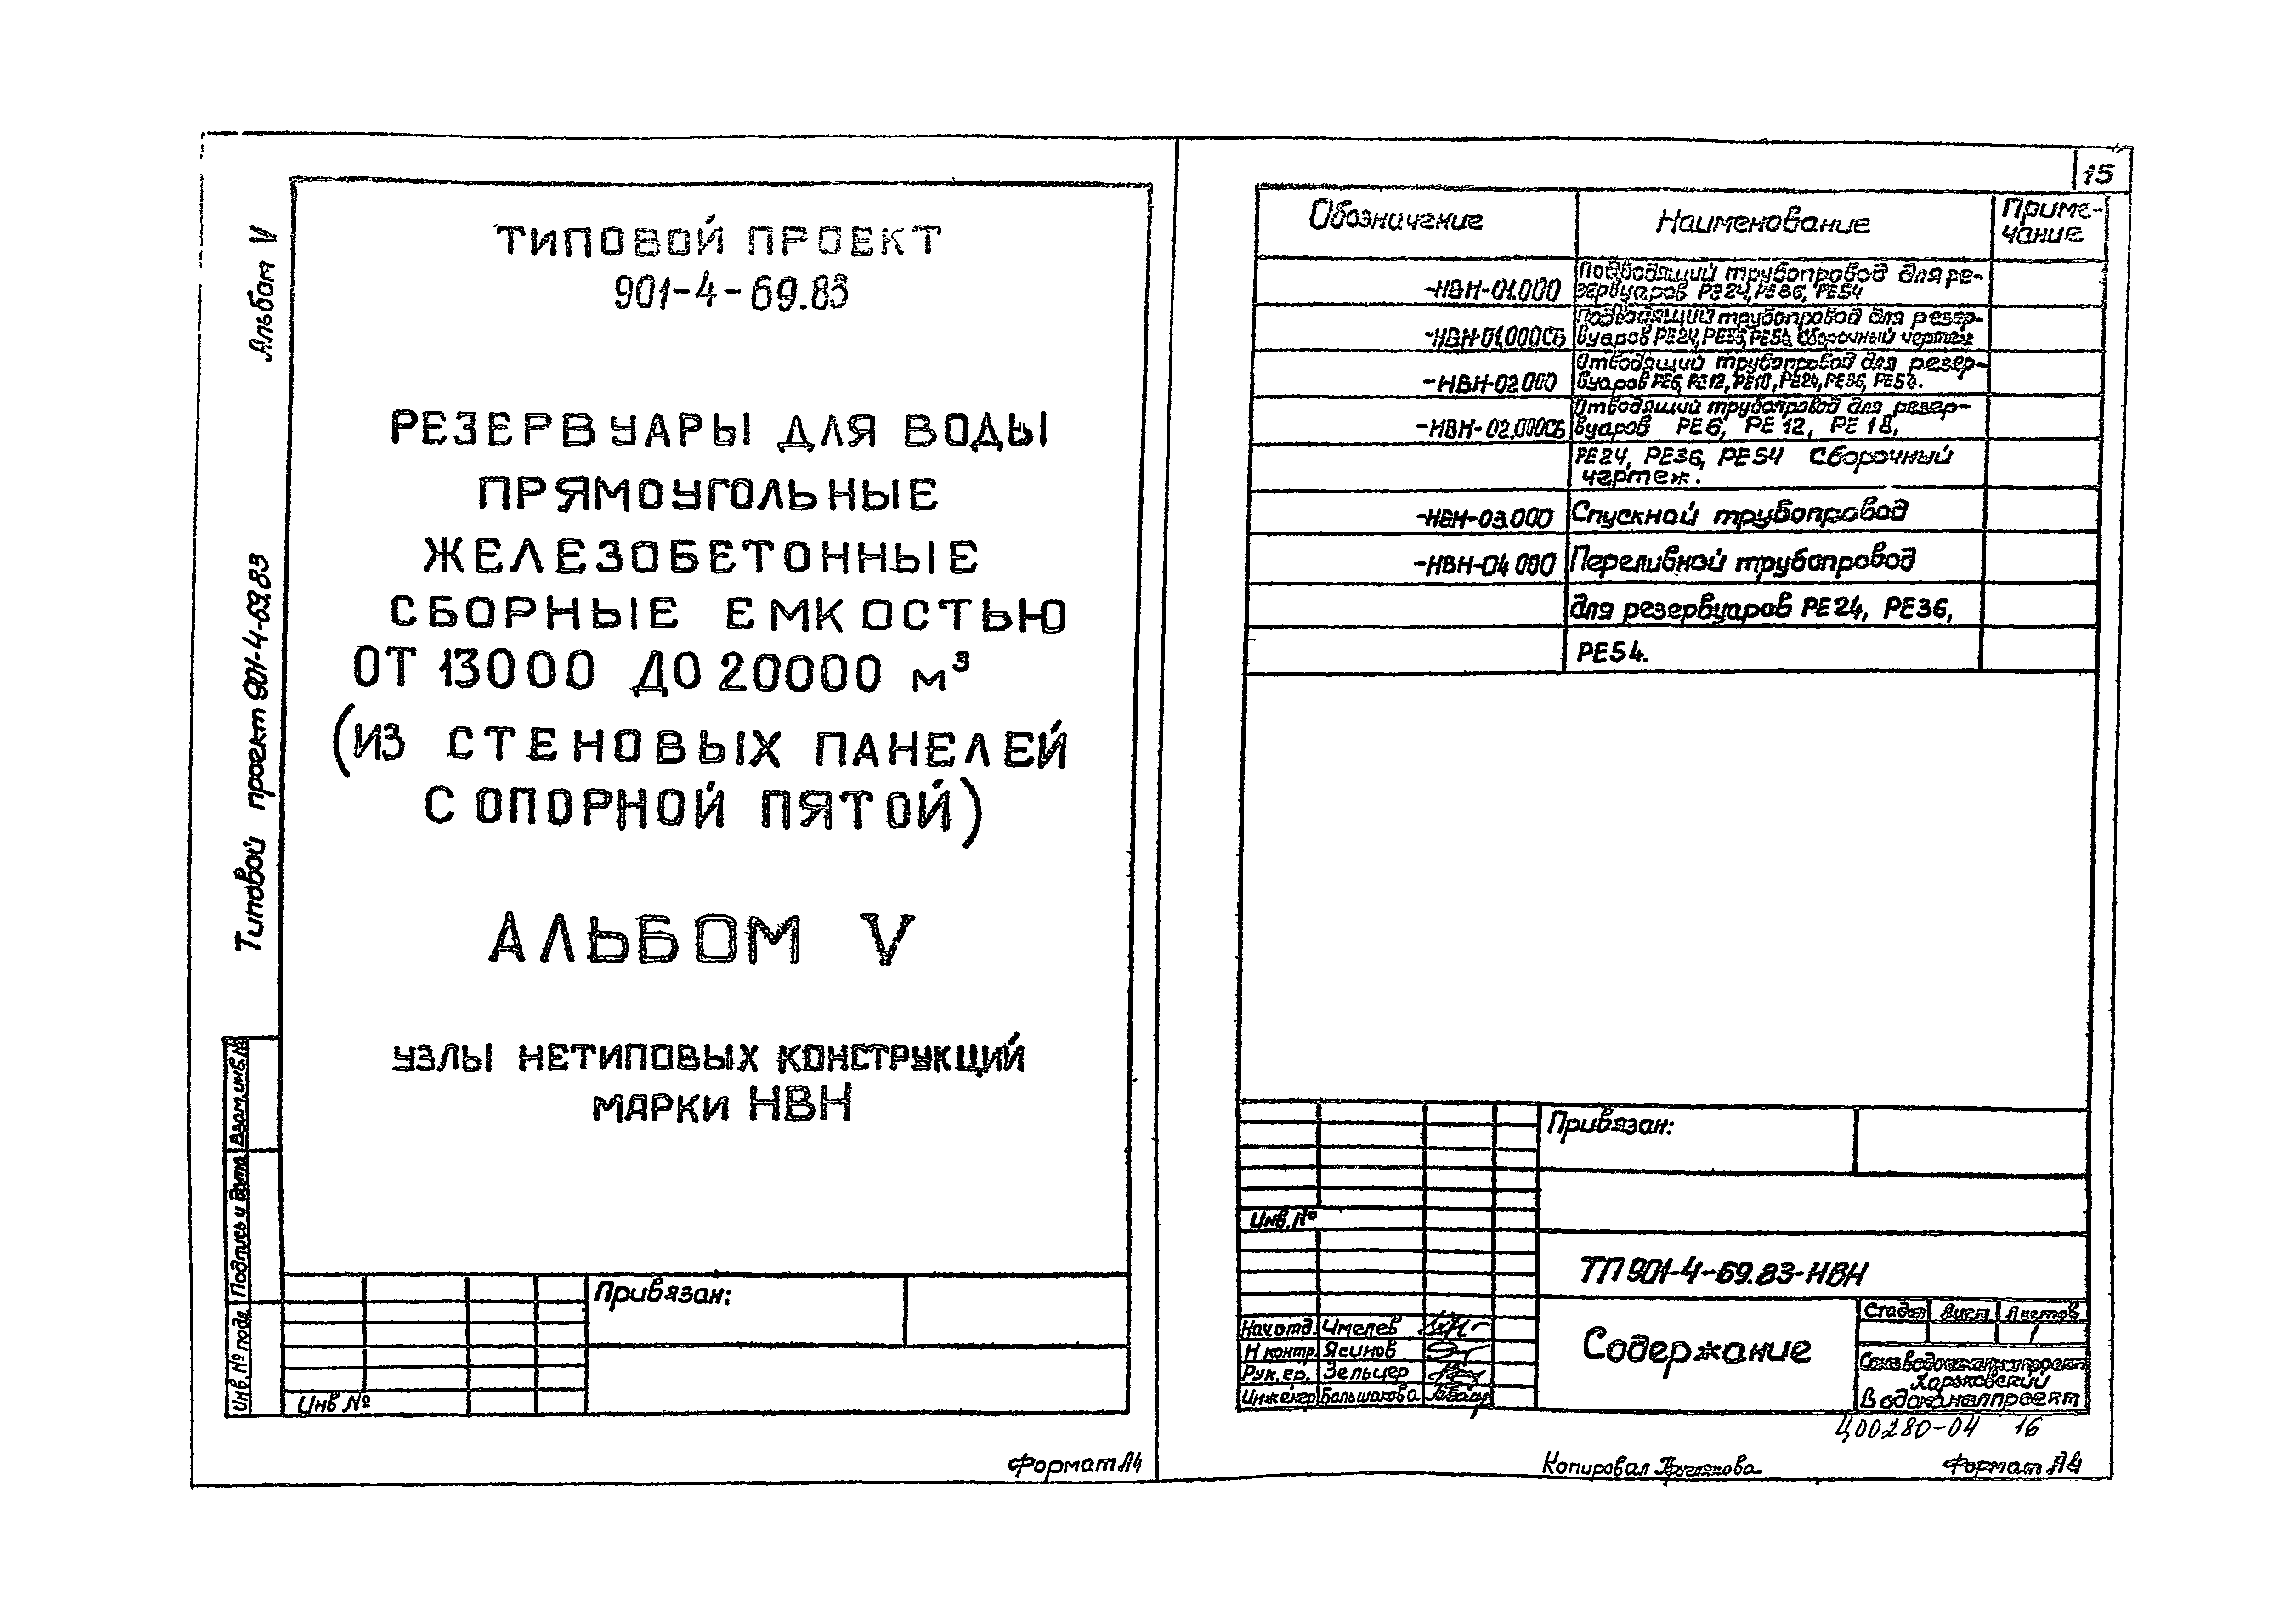 Альбом V
Типовой проект 901-4-69.83
Взам.инв.№
Подпись и дата
Инв.№ подл.
ТИПОВОЙ ПРОЕКТ
901-4-69.83
РЕЗЕРВУАРЫ ДЛЯ ВОДЫ
ПРЯМОУГОЛЬНЫЕ
ЖЕЛЕЗОБЕТОННЫЕ
СБОРНЫЕ ЕМКОСТЬЮ
ОТ 13000 ДО 20000 м³
(ИЗ СТЕНОВЫХ ПАНЕЛЕЙ
С ОПОРНОЙ ПЯТОЙ)
АЛЬБОМ V
УЗЛЫ НЕТИПОВЫХ КОНСТРУКЦИЙ
МАРКИ НВН
Привязан:
Инв №
Формат А4
15
Обозначение Наименование Приме-
чание
Подводящий трубопровод для ре-
-НВН-01.000 зервуаров РЕ24, РЕ36, РЕ54
Подводящий трубопровод для резер-
-НВН-01.000СБ вуаров РЕ24, РЕ36, РЕ54 Сборочный чертеж
Отводящий трубопровод для резер-
-НВН-02.000 вуаров РЕ6, РЕ12, РЕ18, РЕ24, РЕ36, РЕ54.
Отводящий трубопровод для резер-
-НВН-02.000СБ вуаров РЕ6, РЕ12, РЕ18,
РЕ24, РЕ36, РЕ54 Сборочный
чертеж.
-НВН-03.000 Спускной трубопровод
-НВН-04 000 Переливной трубопровод
для резервуаров РЕ24, РЕ36,
РЕ54.
Привязан:
Инв.№
ТП 901-4-69.83-НВН
Содержание
Стадия Лист Листов
1
Нач.отд. Чмелев
Н контр. Ясинов
Рук.гр. Зельцер
Инженер Большакова
Союзводоканалпроект
Харьковский
Водоканалпроект
Ц00280-04 16
Копировал
Формат А4